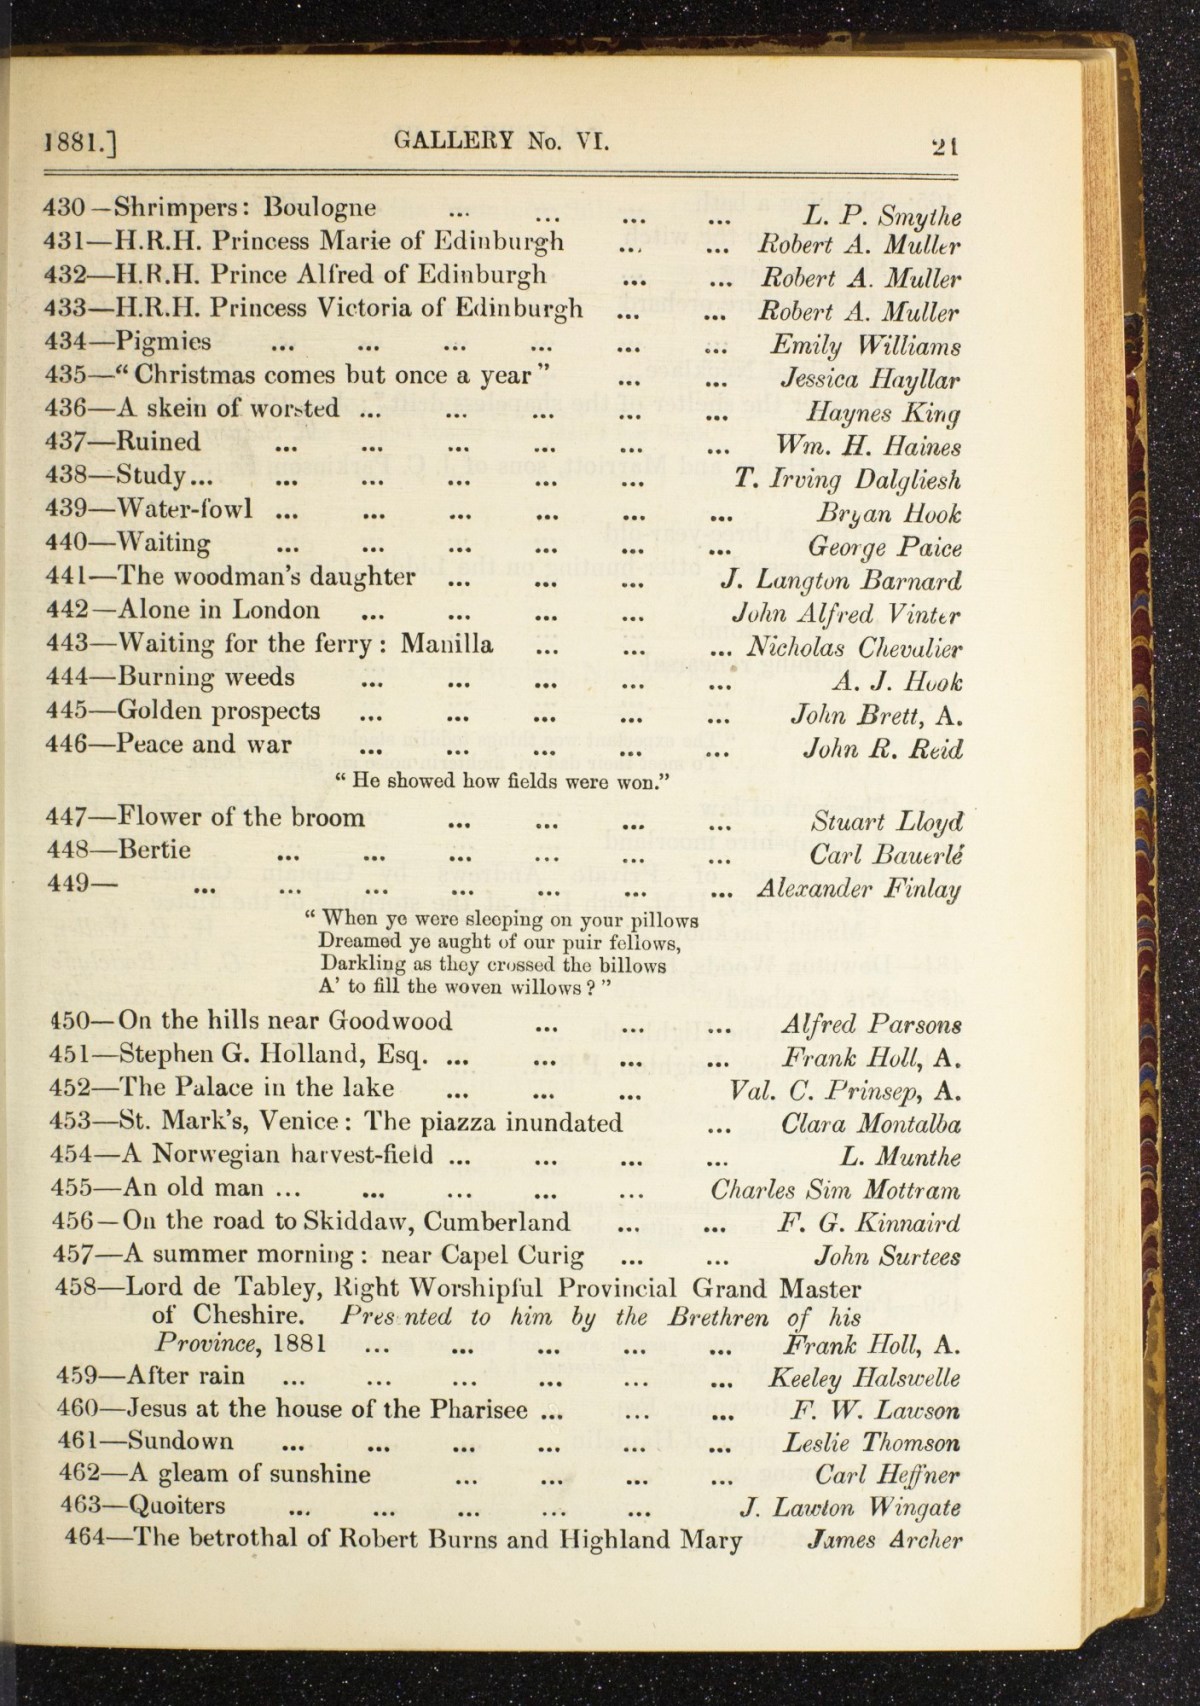 1881.] GALLERY No. VI. 21
430—Shrimpers: Boulogne ... ... ... ... L. P. Smythe
431—H.R.H. Princess Marie of Edinburgh ... ... Robert A. Muller
432—H.R.H. Prince Alfred of Edinburgh ... ... Robert A. Muller
433—H.R.H. Princess Victoria of Edinburgh ... ... Robert A. Muller
434—Pigmies ... ... ... ... ... ... Emily Williams
435—“Christmas comes but once a year” ... ... Jessica Hayllar
436—A skein of worsted ... ... ... ... ... Haynes King
437—Ruined ... ... ... ... ... ... Wm. H. Haines
438—Study... ... ... ... ... ... T. Irving Dalgliesh
439—Water-fowl ... ... ... ... ... ... Bryan Hook
440—Waiting ... ... ... ... ... ... George Paice
441—The woodman's daughter ... ... ... J. Langton Barnard
442—Alone in London ... ... ... ... John Alfred Vinter
443—Waiting for the ferry: Manilla ... ... ... Nicholas Chevalier
444—Burning weeds ... ... ... ... ... A. J. Hook
445—Golden prospects ... ... ... ... ... John Brett, A.
446—Peace and war ... ... ... ... ... John R. Reid
“He showed how fields were won.”
447—Flower of the broom ... ... ... ... Stuart Lloyd
448—Bertie ... ... ... ... ... ... Carl Bauerlé
449— ... ... ... ... ... ... ... Alexander Finlay
“When ye were sleeping on your pillows
Dreamed ye aught of our puir fellows,
Darkling as they crossed the billows
A' to fill the woven willows?”
450—On the hills near Goodwood ... ... ... Alfred Parsons
451—Stephen G. Holland, Esq. ... ... ... ... Frank Holl, A.
452—The Palace in the lake ... ... ... Val. C. Prinsep, A.
453—St. Mark's, Venice: The piazza inundated ... Clara Montalba
454—A Norwegian harvest-field ... ... ... ... L. Munthe
455—An old man ... ... ... ... ... Charles Sim Mottram
456—On the road to Skiddaw, Cumberland ... ... F. G. Kinnaird
457—A summer morning: near Capel Curig ... ... John Surtees
458—Lord de Tabley, Right Worshipful Provincial Grand Master
of Cheshire. Presented to him by the Brethren of his
Province, 1881 ... ... ... ... ... Frank Holl, A.
459—After rain ... ... ... ... ... ... Keeley Halswelle
460—Jesus at the house of the Pharisee ... ... ... F. W. Lawson
461—Sundown ... ... ... ... ... ... Leslie Thomson
462—A gleam of sunshine ... ... ... ... Carl Heffner
463—Quoiters ... ... ... ... ... J. Lawton Wingate
464—The betrothal of Robert Burns and Highland Mary James Archer